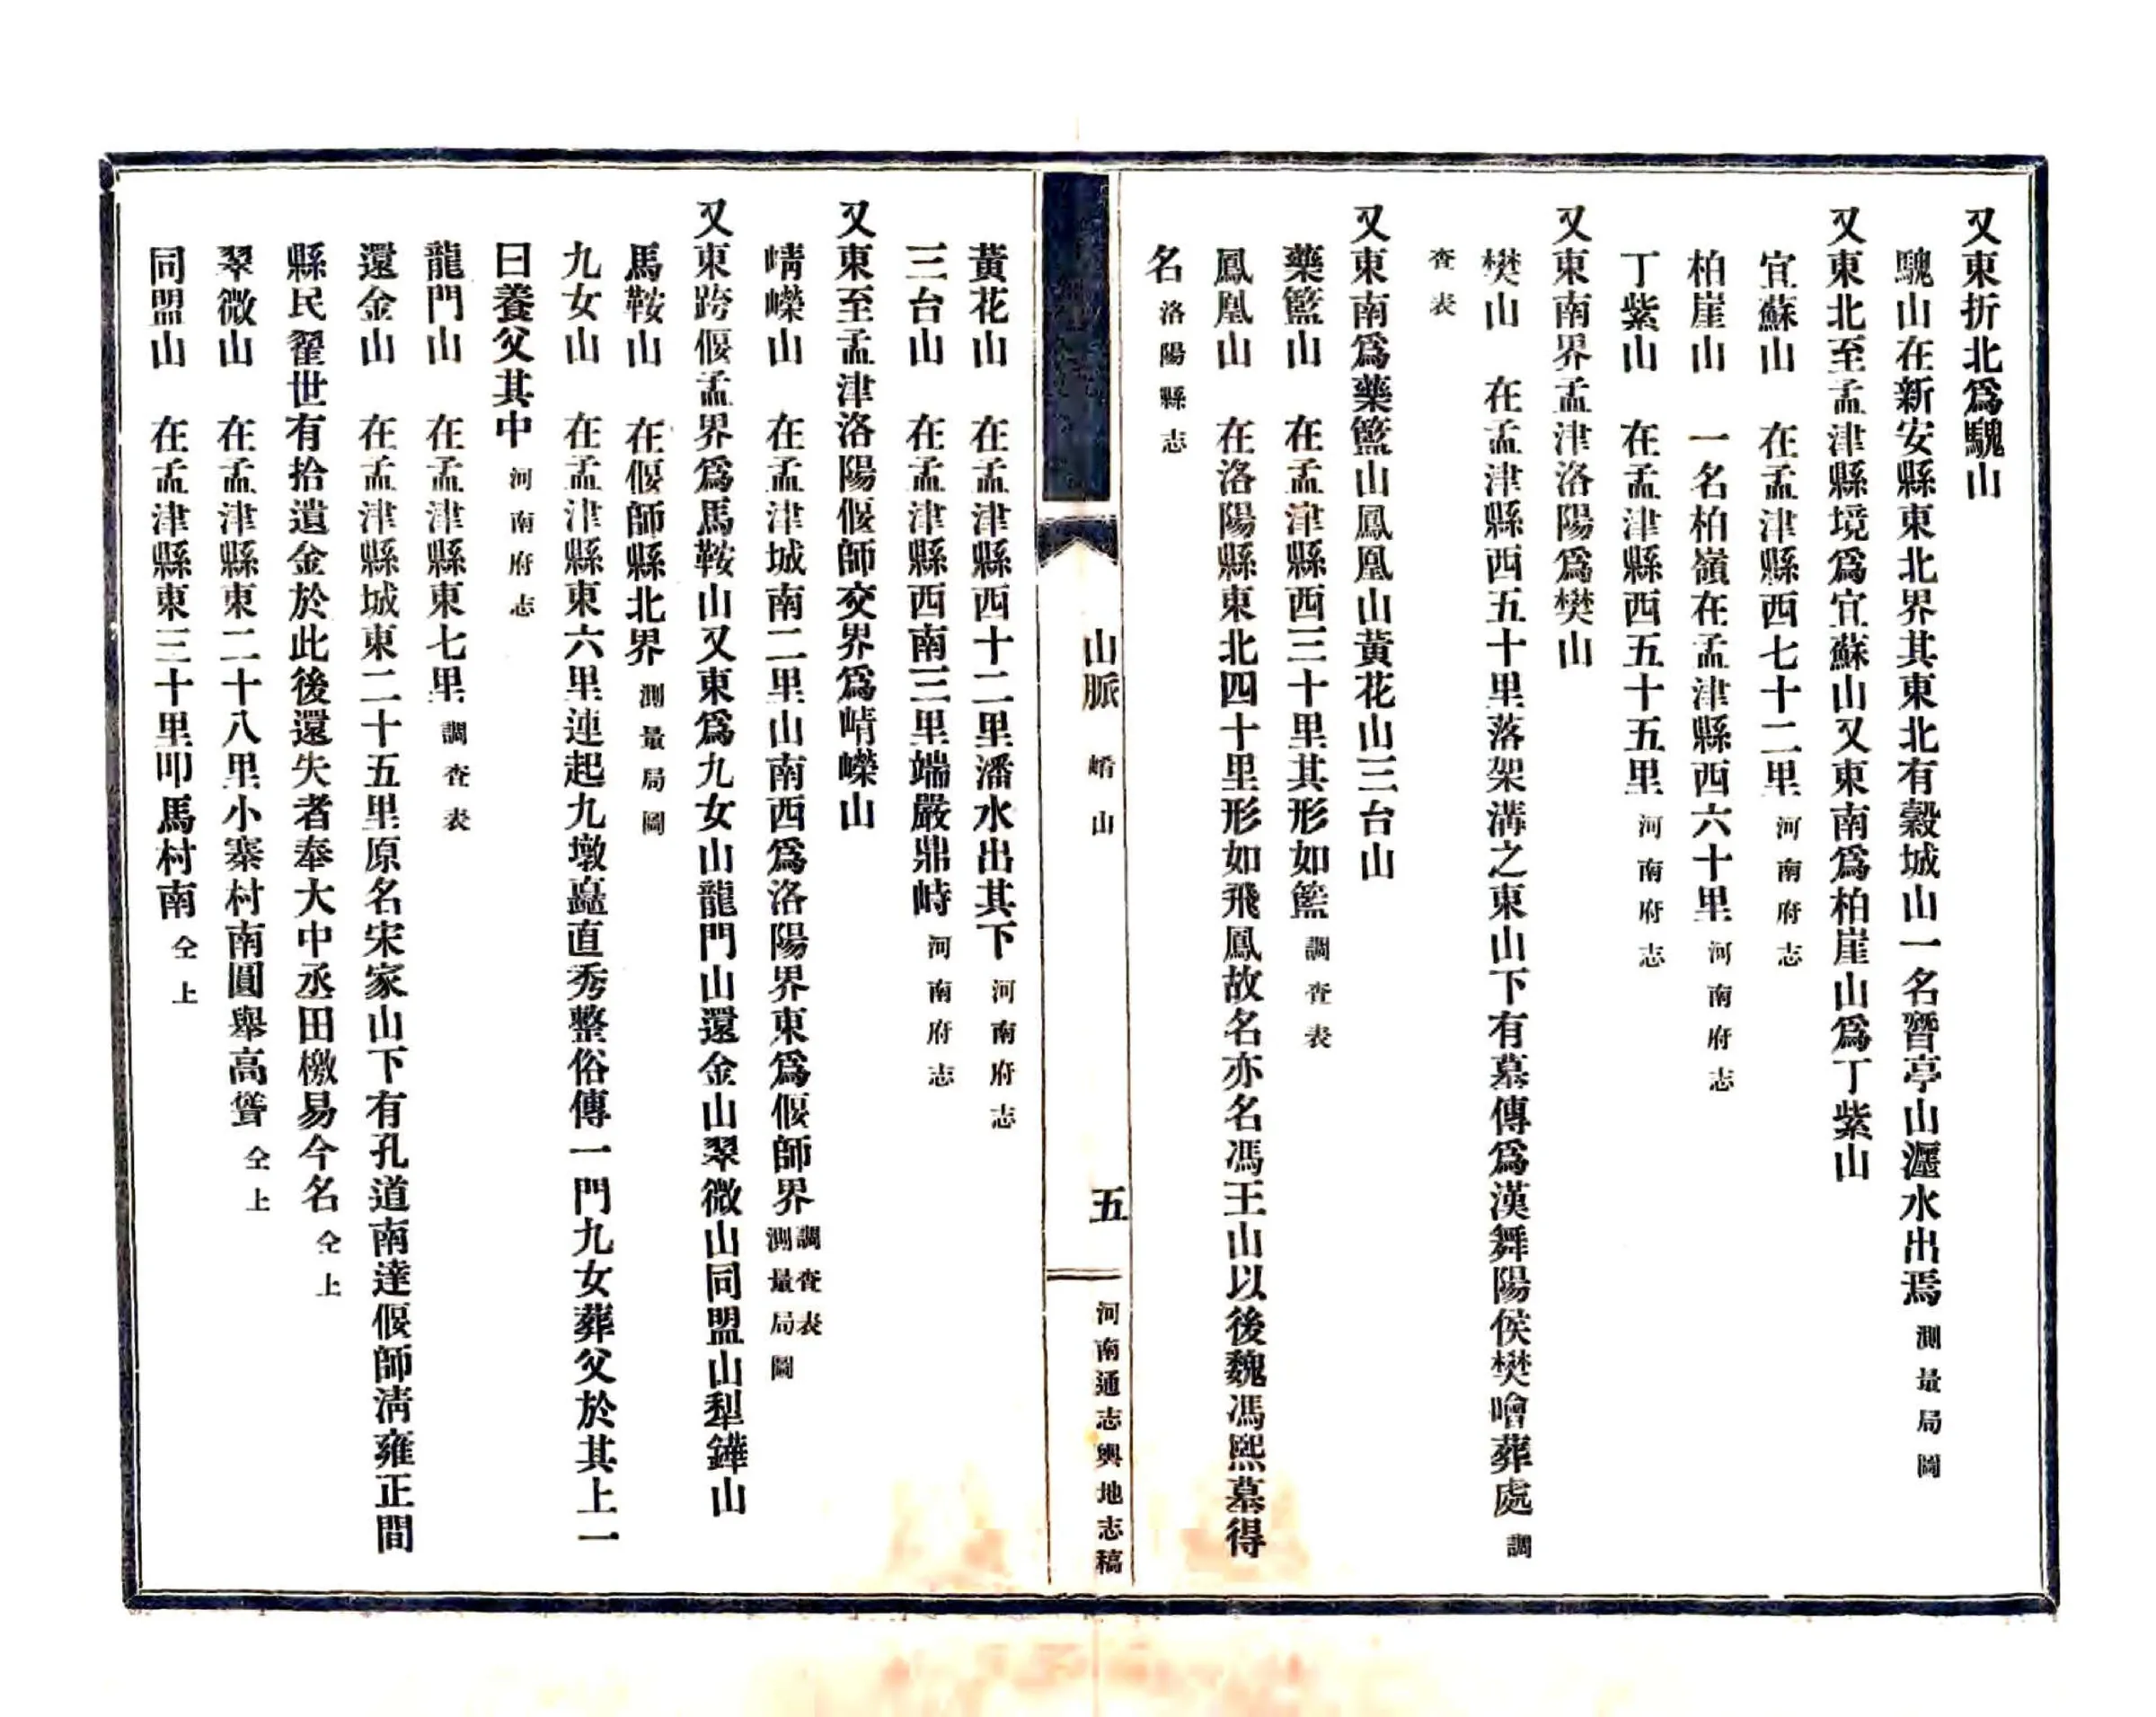 又東折北爲騩山
騩山在新安縣東北界其東北有穀城山一名簪亭山瀍水出焉 測量局圖
又東北至孟津縣境爲宜蘇山又東南爲柏崖山爲丁紫山
宜蘇山 在孟津縣西七十二里 河南府志
柏崖山 一名柏嶺在孟津縣西六十里 河南府志
丁紫山 在孟津縣西五十五里 河南府志
又東南界孟津洛陽爲樊山
樊山 在孟津縣西五十里落架溝之東山下有墓傳爲漢舞陽侯樊噲葬處 調
查表
又東南爲藥籃山鳳凰山黃花山三台山
藥籃山 在孟津縣西三十里其形如籃 調查表
鳳凰山 在洛陽縣東北四十里形如飛鳳故名亦名馮王山以後魏馮熙墓得
名 洛陽縣志
山脈 崤山 五 河南通志輿地志稿
黃花山 在孟津縣西十二里潘水出其下 河南府志
三台山 在孟津縣西南三里端嚴鼎峙 河南府志
又東至孟津洛陽偃師交界爲崝嶸山
崝嶸山 在孟津城南二里山南西爲洛陽界東爲偃師界 調查表 測量局圖
又東跨偃孟界爲馬鞍山又東爲九女山龍門山還金山翠微山同盟山犁鏵山
馬鞍山 在偃師縣北界 測量局圖
九女山 在孟津縣東六里連起九墩矗直秀整俗傳一門九女葬父於其上一
曰養父其中 河南府志
龍門山 在孟津縣東七里 調查表
還金山 在孟津縣城東二十五里原名宋家山下有孔道南達偃師淸雍正間
縣民翟世有拾遺金於此後還失者奉大中丞田檄易今名 仝上
翠微山 在孟津縣東二十八里小寨村南圓舉高聳 仝上
同盟山 在孟津縣東三十里叩馬村南 仝上